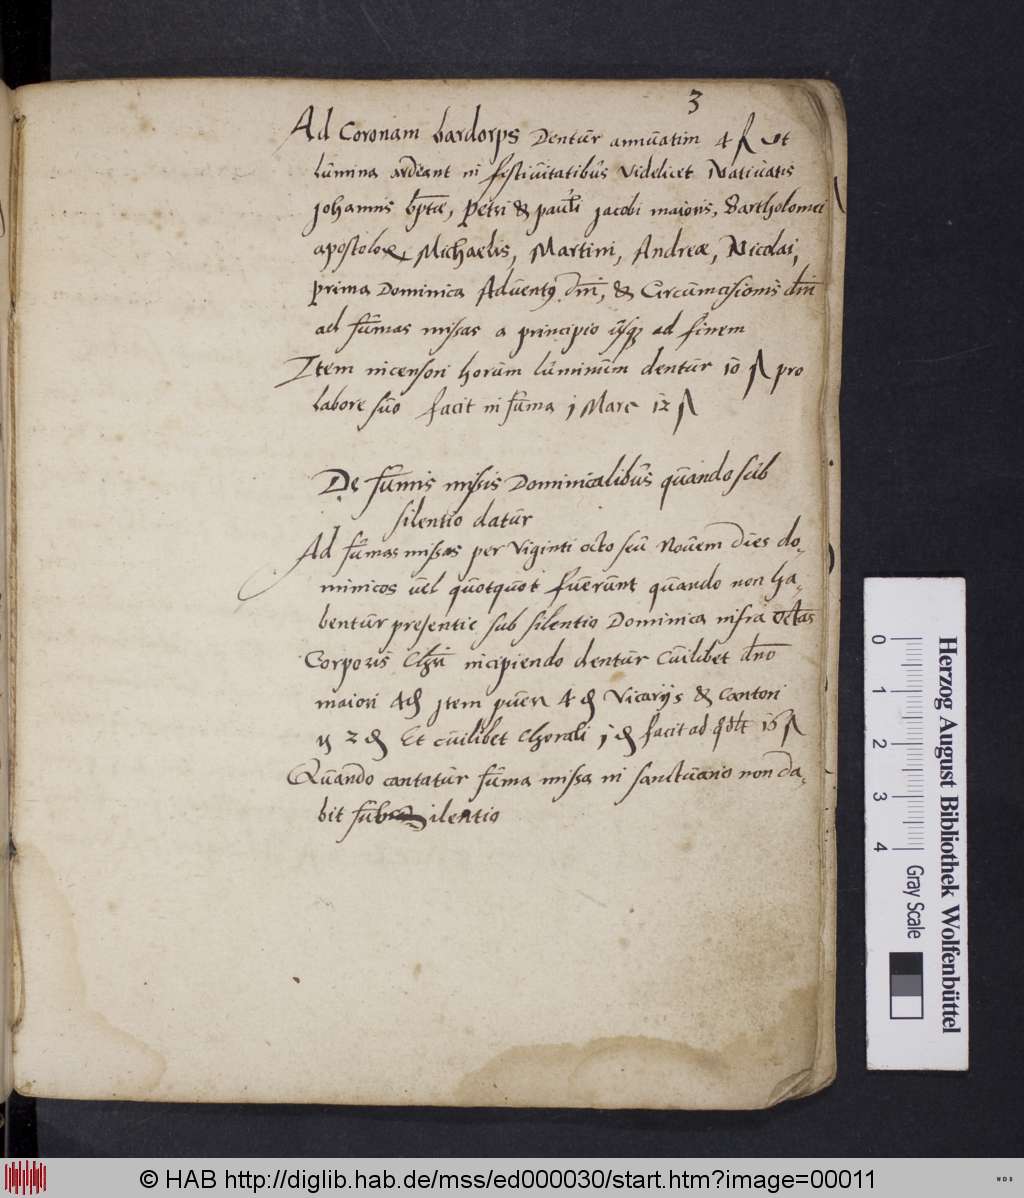 3
Ad Coronam bardorps Dentur annuatim 4 ß ut
lumina ardeant in festiuitatibus Videlicet Natiuatis
Johannis bptæ, Petri & pauli Jacobi maioris, Bartholomei
apostolorꝝ Michaelis, Martini, Andreæ, Nicolai,
prima Dominica Aduentꝰ dni, & Circumcisionis dni
ad sumas missas a principio usqꝫ ad finem
Item incensori horum luminum dentur 10 ß pro
labore suo facit in suma j Marc 12 ß
De sumis missis Dominicalibus quando sub
silentio datur
Ad sumas missas per Viginti octo seu Nouem dies do-
minicos uel quotquot fuerunt quando non ha-
bentur presentie sub silentio Dominica infra octas
Corporis Chri incipiendo dentur Cuilibet dno
maiori 4 ₰ Item puer 4 ₰ Vicarijs & Cantori
2 ₰ Et cuilibet Chorali j ₰ facit ad 16 ß
Quando cantatur suma missa in sanctuario non da-
bit sub silentio
0 1 2 3 4
Gray Scale
Herzog August Bibliothek Wolfenbüttel
© HAB http://diglib.hab.de/mss/ed000030/start.htm?image=00011